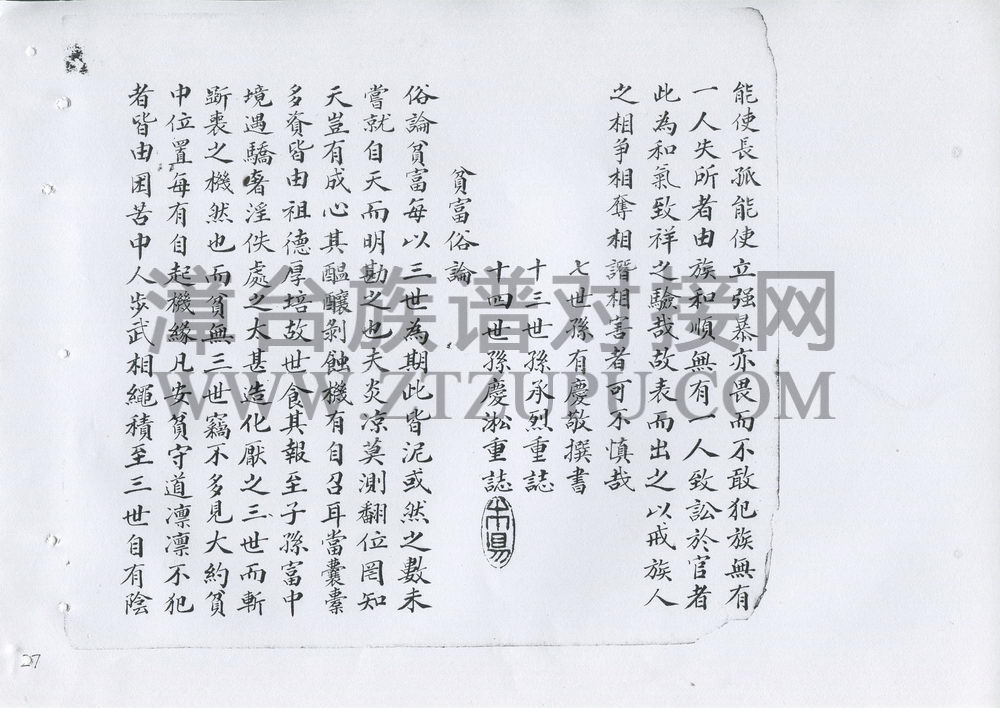 能使長孤能使立强暴亦畏而不敢犯族無有
一人失所者由族和順無有一人致訟於官者
此為和氣致祥之驗哉故表而出之以戒族人
之相爭相奪相謂相害者可不慎哉
七世孫有慶敬撰書
十三世孫承烈重誌
十四世孫慶淞重誌
貧富俗論
俗論貧富每以三世為期此皆泥或然之數未
嘗就自天而明勘之也夫炎凉莫測翻位罔知
天豈有成心其醞釀剝蝕機有自召耳當囊橐
多資皆由祖德厚培故世食其報至子孫富中
境遇驕奢淫佚處之大甚造化厭之三世而斬
斷喪之機然也而貧無三世竊不多見大約貧
中位置每有自起機緣凡安貧守道凛凛不犯
者皆由困苦中人步武相繩積至三世自有陰
漳台族谱对接网
WWW.ZTZUPU.COM
27